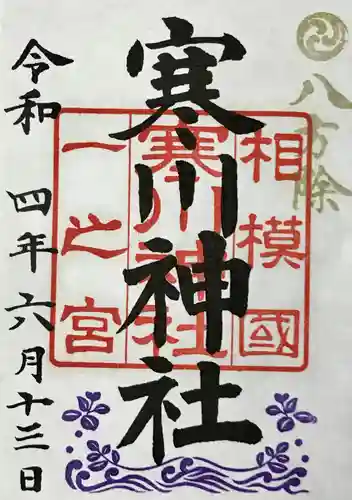 八方除
相模國
寒川神社
一之宮
寒川神社
令和四年六月十三日